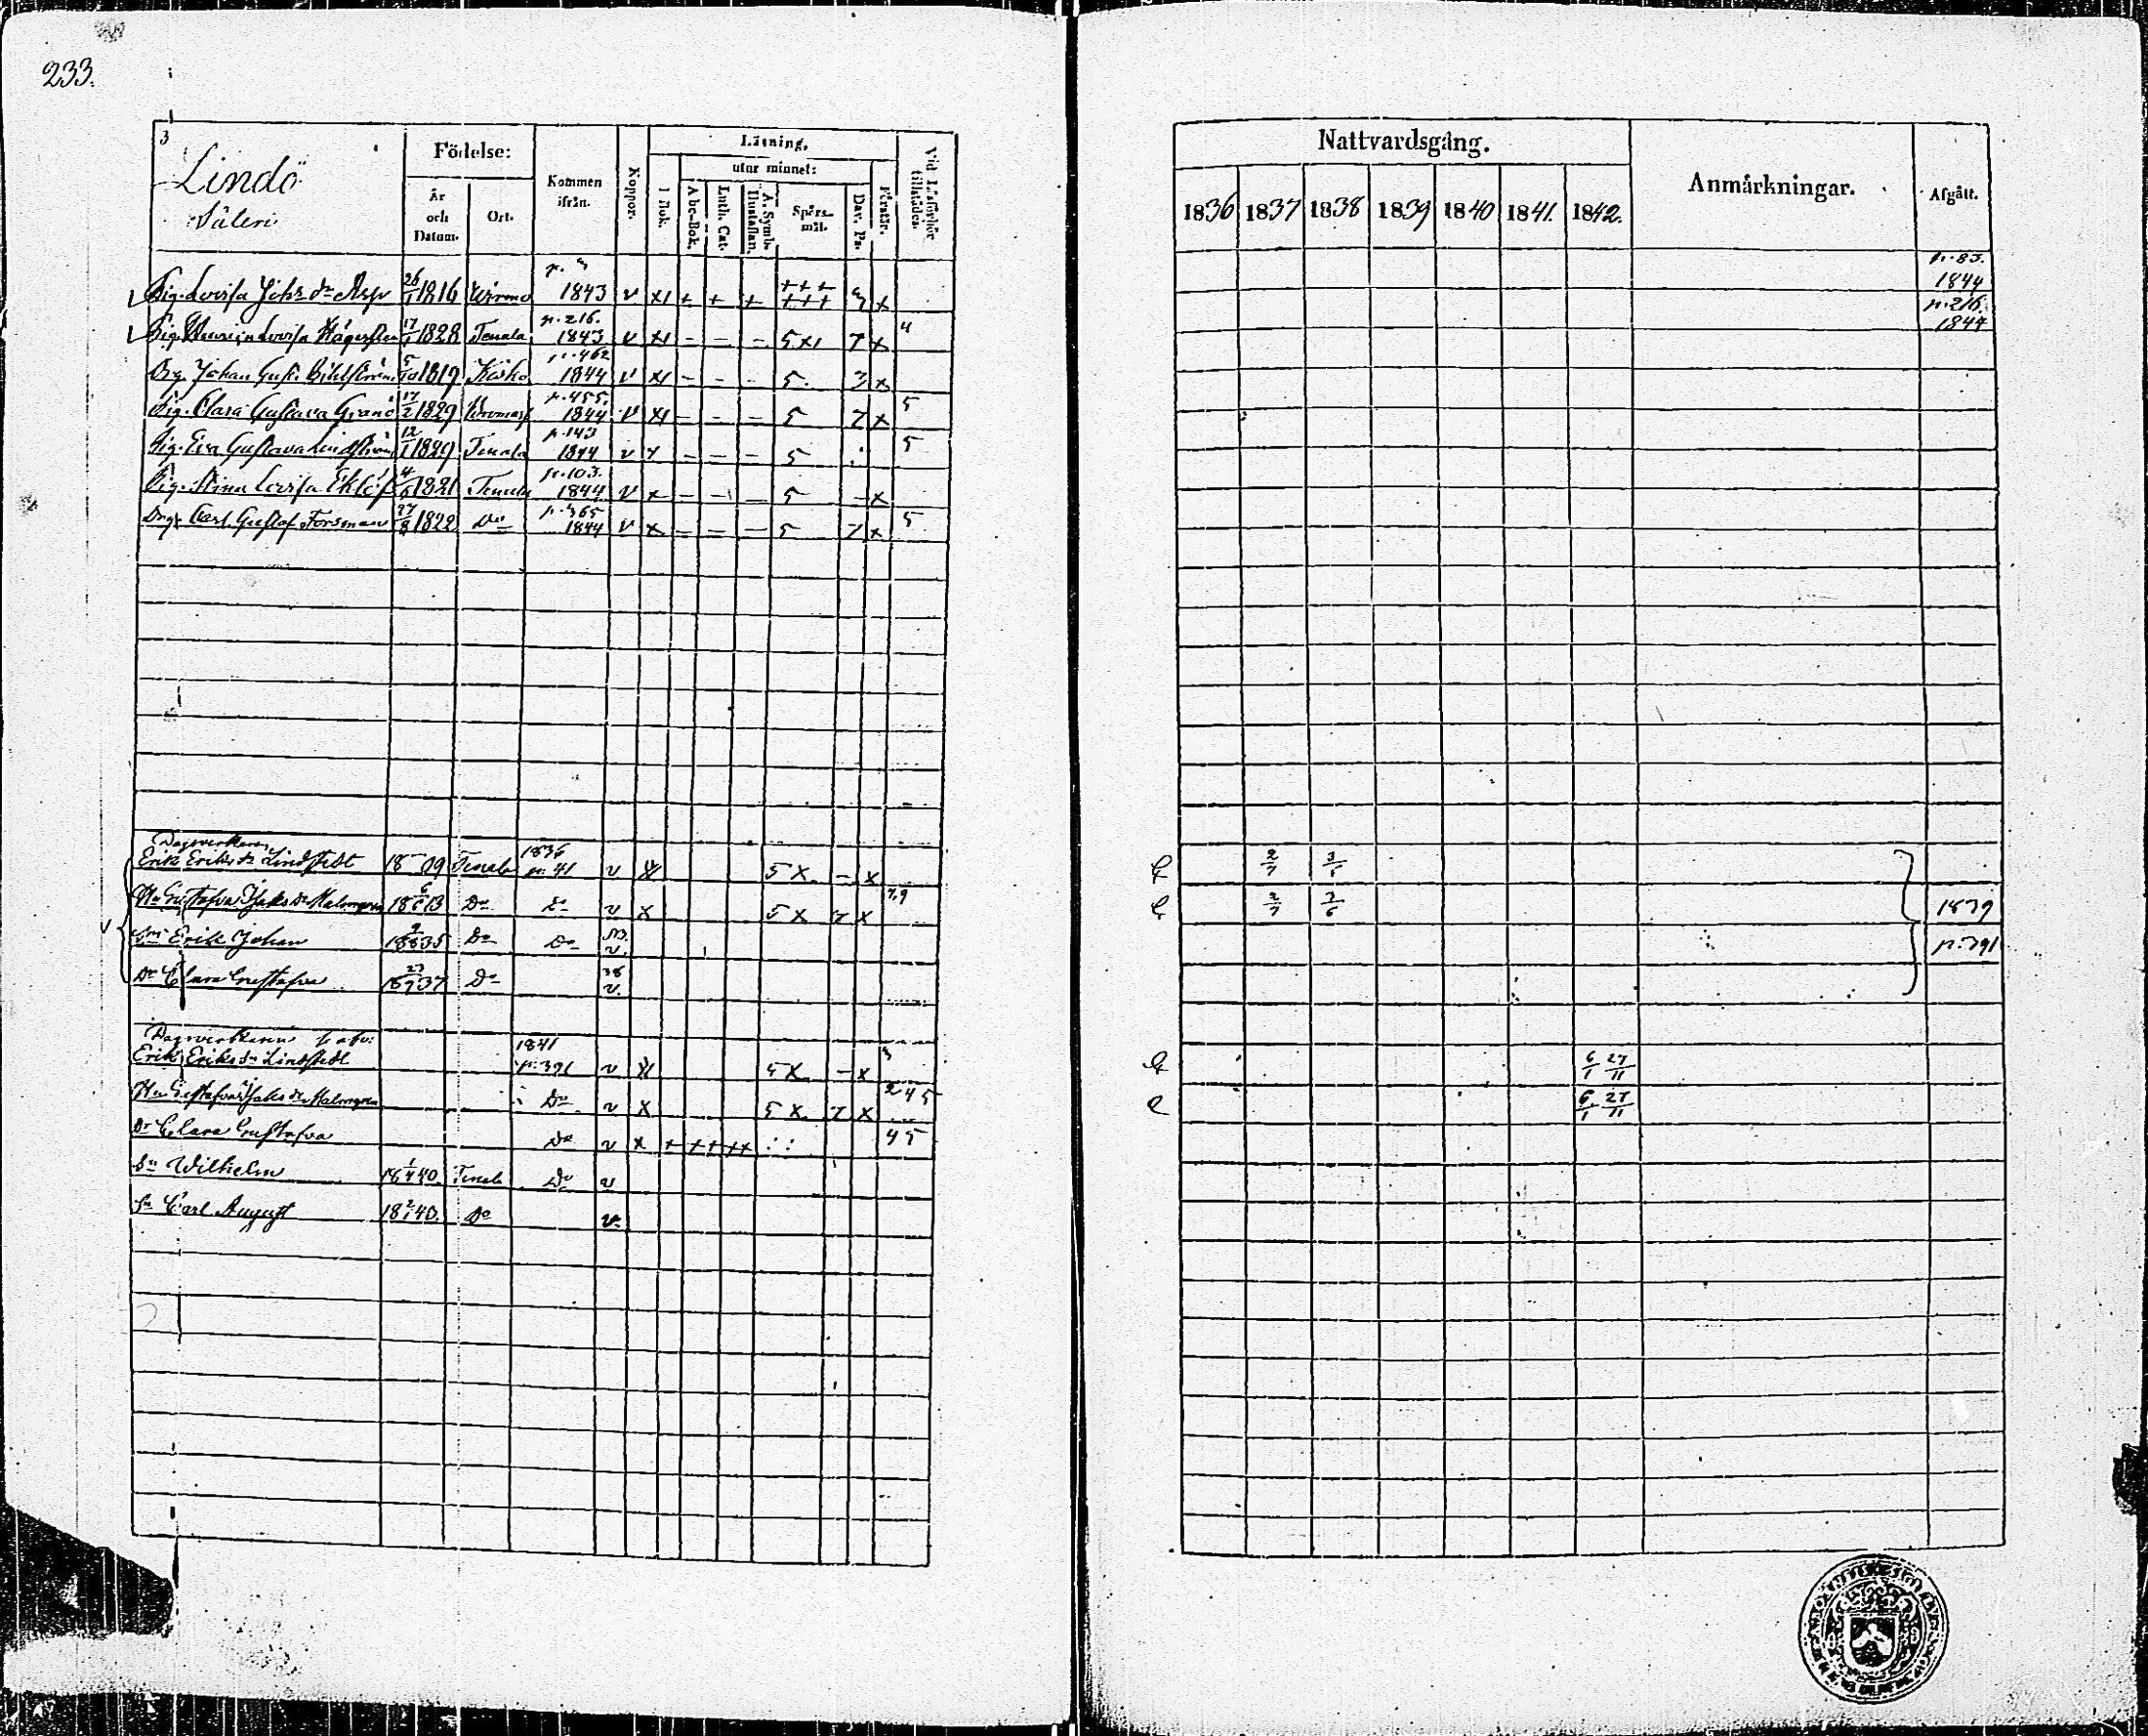 233.
3
Lindö
Säteri
Födelse:
År
och
Datum.
Ort.
Kommen
ifrån.
Koppor.
Läsning,
utur minnet:
I Bok.
Abc-Bok.
Luth. Cat.
A. Symb.
Hustaflan.
Spörs-
mål.
Dav. Ps.
Förstår.
Vid Läsförhör
tillstädes.
Pig. Lovisa Johs dr Asp 26/1 1816 Wirmo p. 3 1843 v x1 + + + +++ +++ 3 x
Pig. Lovisa Hägerflen 17/1 1828 Tenala p. 216. 1843 v x1 - - - 5x1 7 x 4
Drg. Johan Gust. 5/10 1819 Kisko p. 462 1844 v x1 - - - 5. 3 x
Pig. Clara Gustava Granö 17/2 1829 p. 455. 1844 v x1 - - - 5 7 x 5
Pig. Eva Gustava Lindström 12/1 1829 Tenala p. 143 1844 v - - - 5 5
Pig. Stina Lovisa Eklöf 4/6 1821 Tenala p. 103. 1844 v x - - - 5 - x
Drg. Carl Gustaf Forsman 27/8 1822 Do p. 365 1844 v x - - - 5 7 x 5
Dagsverkaren
Erik Eriks sn Lindstedt 18 09 Tenala 1836 p. 41 v 5 x. - x
Hu Gustafva Jakobs dr Malmgren 18 6/6 13 Do Do v x 5 x 7 x 7,9
Sn Erik Johan 18 9/8 35 Do Do v.
Dr Clara Gustafva 18 23/7 37 Do 38 v.
Dagsverkaren
Erik Eriks sn Lindstedt 1841 p. 391 v 5 x. - x 3
Hu Gustafva Jakobs dr Malmgren Do v x 5 x. 7 x 2 4 5
Dr Clara Gustafva Do v x + ++ ++ : : 45
Sn Wilhelm 18 1/4 40 Tenala Do v
Sn Carl August 18 40. Do v.
Nattvardsgång.
Anmärkningar.
Afgått.
1836 1837 1838 1839 1840 1841. 1842.
p. 83.
1844
p. 216.
1844
2/7 3/6
2/7 3/6 1839
p. 391
6/1 27/11
6/1 27/11